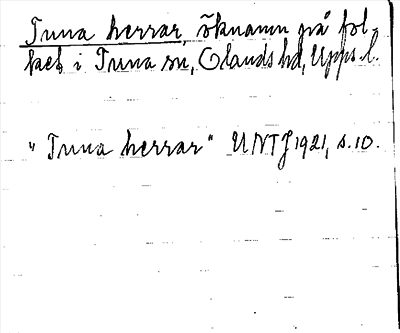 Tuna herrar, öknamn på fol-
ket i Tuna sn, Olands hd, Upps. l.
"Tuna herrar" UNTJ 1921, s. 10.